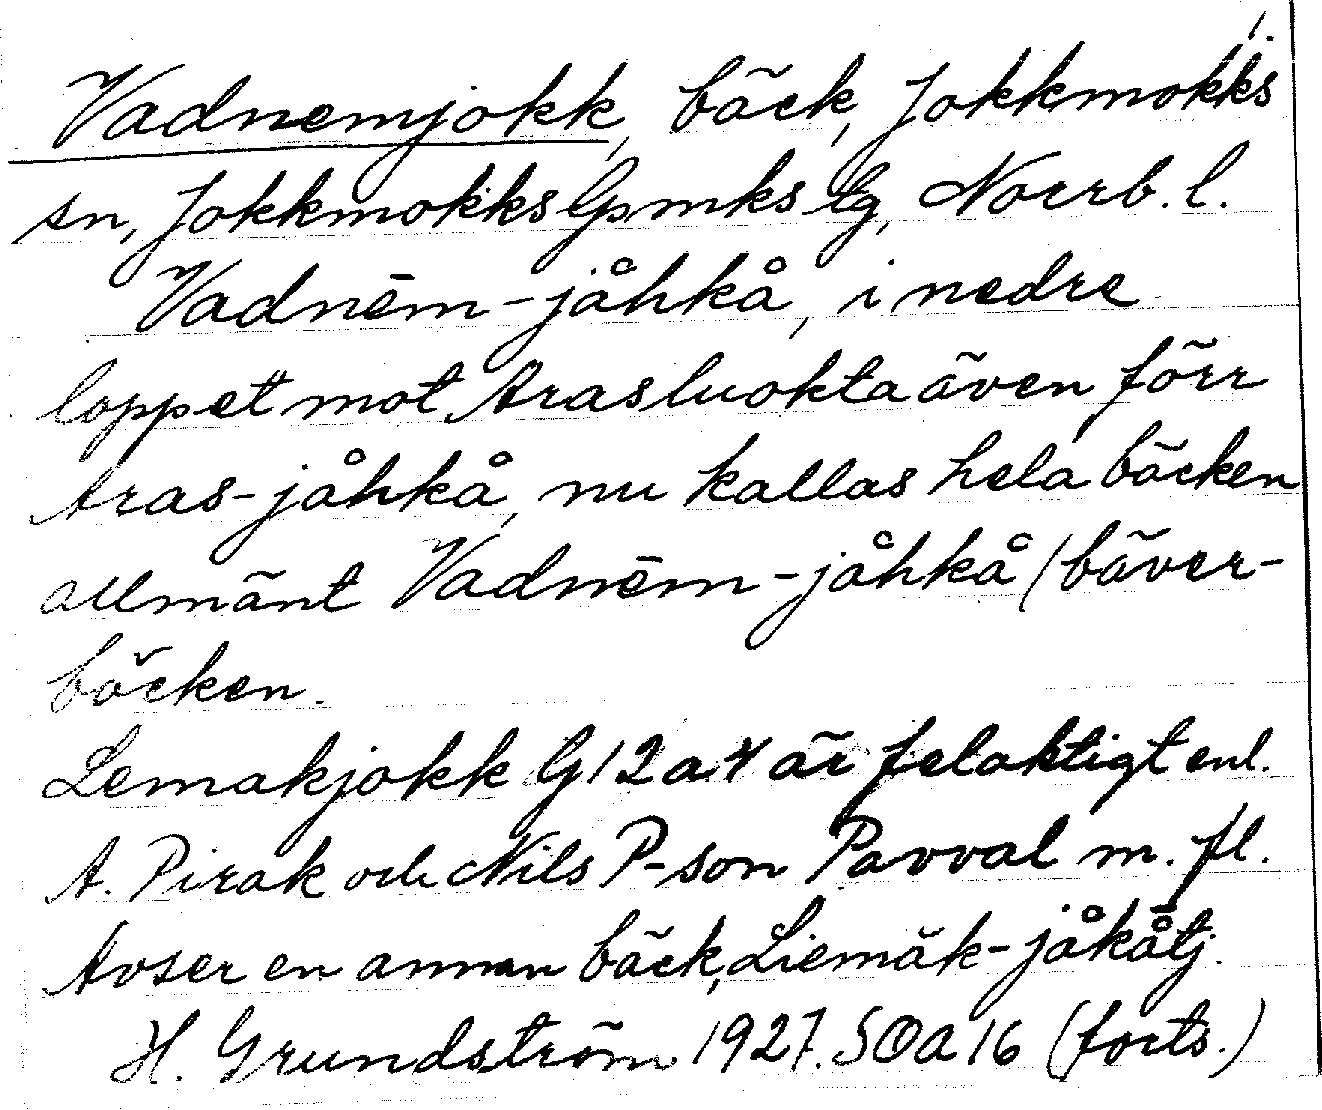 1.
Vadnemjokk, bäck, Jokkmokks
sn, Jokkmokks Gpmks lg, Norrb. l.
Vadnēm-jåhkå, i nedre
loppet mot Arasluokta även förr
Aras-jåhkå, nu kallas hela bäcken
allmänt Vadnēm-jåhkå (bäver-
bäcken.
Lemakjokk G12a4 är felaktigt enl.
A. Pirak och Nils P-son Pavval m. fl.
Avser en annan bäck, Liemăk-jåkåtj.
H. Grundström 1927. SOA 16 (forts.)